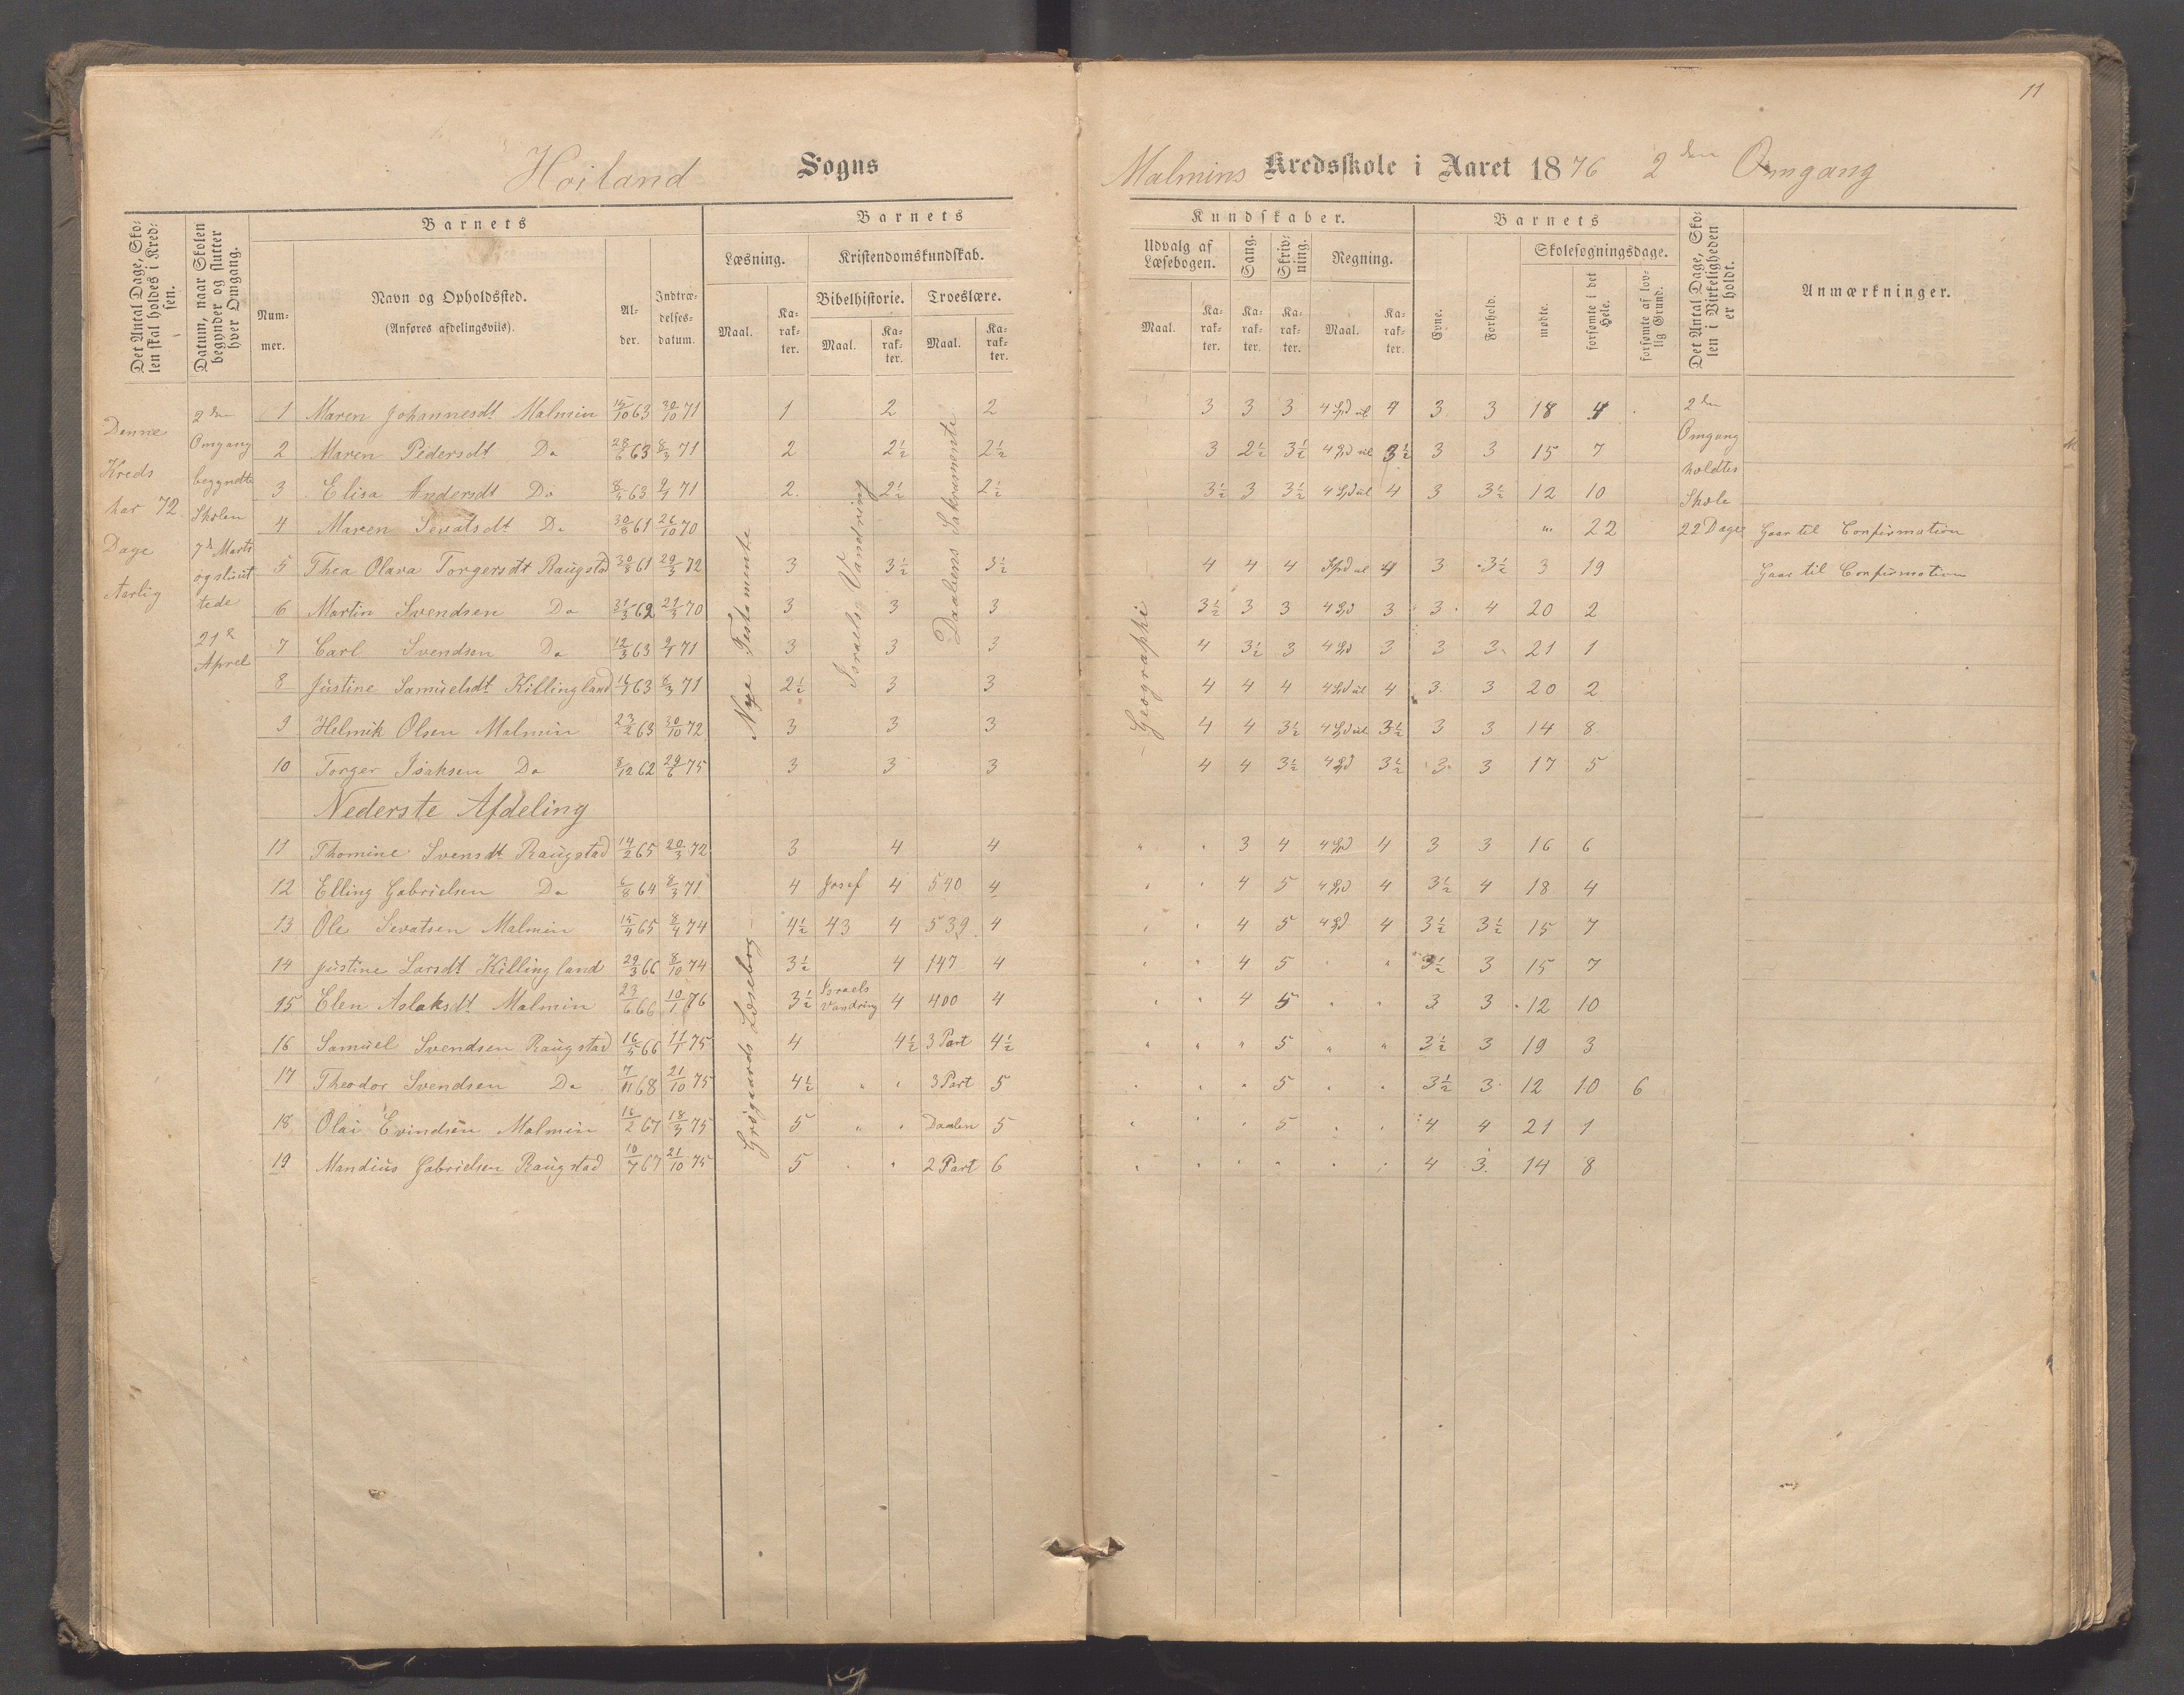 11
Hoiland Sogns Malmins Kredsskole i Aaret 1876 2den Omgang
Det Antal Dage, Skolen skal holdes i Kredsen.
Datum, naar Skolen begynder og slutter hver Omgang.
Barnets
Nummer.
Navn og Opholdssted.
(Anføres afdelingsviis).
Alder.
Indtrædelsesdatum.
Barnets Kundskaber.
Læsning.
Maal. Karakter.
Kristendomskundskab.
Bibelhistorie. Troeslære.
Maal. Karakter. Maal. Karakter.
Udvalg af Læsebogen.
Maal. Karakter.
Sang. Karakter.
Skrivning. Karakter.
Regning.
Maal. Karakter.
Barnets
Evne. Forhold.
Skolesøgningsdage.
mødte. forsømte i det Hele. forsømte af lovlig Grund.
Det Antal Dage, Skolen i Virkeligheden er holdt.
Anmærkninger.
Denne
Kreds
har 72
Dage
Aarlig
2den
Omgang
begyndte
Skolen
7de Marts
og sluut
tede
21de
Aprel
Nye Testamente
Israels Vandring
Daabens Sakramente
Geographi
Grøgaards Læsebog
2den
Omgang
holdtes
Skole
22 Dage
1 Maren Johannesdt Malmin 15/10 63 30/10 71 1 2 2 3 3 3 4 Spd ul 4 3 3 18 4
2 Maren Pedersdt Do 28/6 63 8/3 71 2 2½ 2½ 3 2½ 3½ 4 Spd ul 3½ 3 3 15 7
3 Elisa Andersdt Do 8/4 63 9/1 71 2 2½ 2½ 3½ 3 3½ 4 Spd ul 4 3 3½ 12 10
4 Maren Sevatsdt Do 30/8 61 26/10 70 " 22 Gaar til Confirmation
5 Thea Olava Torgersdt Raugstad 30/8 61 29/3 72 3 3½ 3½ 4 4 4 Spd ul 4 3 3½ 3 19 Gaar til Confirmation
6 Martin Svendsen Do 31/3 62 21/3 70 3 3 3 3½ 3 3 4 Spd 3 3 4 20 2
7 Carl Svendsen Do 12/3 63 9/1 71 3 3 3 4 3½ 3 4 Spd 3 3 3 21 1
8 Justine Samuelsdt Killingland 16/7 63 8/3 71 2½ 3 3 4 4 4 4 Spd ul 4 3 3 20 2
9 Helmik Olsen Malmin 23/2 63 30/10 72 3 3 3 4 4 3½ 4 Spd ul 3½ 3 3 14 8
10 Torger Isaksen Do 8/12 62 29/6 75 3 3 3 4 4 3½ 4 Spd 3½ 3 3 17 5
Nederste Afdeling
11 Thomine Svensdt Raugstad 14/2 65 20/3 72 3 4 4 " " 3 4 4 Spd 4 3 3 16 6
12 Elling Gabrielsen Do 6/8 64 8/3 71 4 Josef 4 540 4 " " 4 5 4 Spd 4 3½ 4 18 4
13 Ole Sevatsen Malmin 15/4 65 8/4 74 4½ 43 4 539 4 " " 4 5 4 Spd 4 3½ 3½ 15 7
14 Justine Larsdt Killingland 29/3 66 8/10 74 3½ 4 147 4 " " 4 5 " " 3½ 3 15 7
15 Elen Aslaksdt Malmin 23/6 66 10/1 76 3½ Israels Vandring 4 400 4 " " 4 5 " " 3 3 12 10
16 Samuel Svendsen Raugstad 16/5 66 11/1 75 4 4½ 3 Part 4½ " " " 5 " " 3½ 3 19 3
17 Theodor Svendsen Do 7/11 68 21/10 75 4½ " " 3 Part 5 " " " 5 " " 3½ 3 12 10 6
18 Olai Evindsen Malmin 16/2 67 18/3 75 5 " " Daaben 5 " " " 5 " " 4 4 21 1
19 Mandius Gabrielsen Raugstad 10/7 67 21/10 75 5 " " 2 Part 6 " " " " " " 4 3 14 8